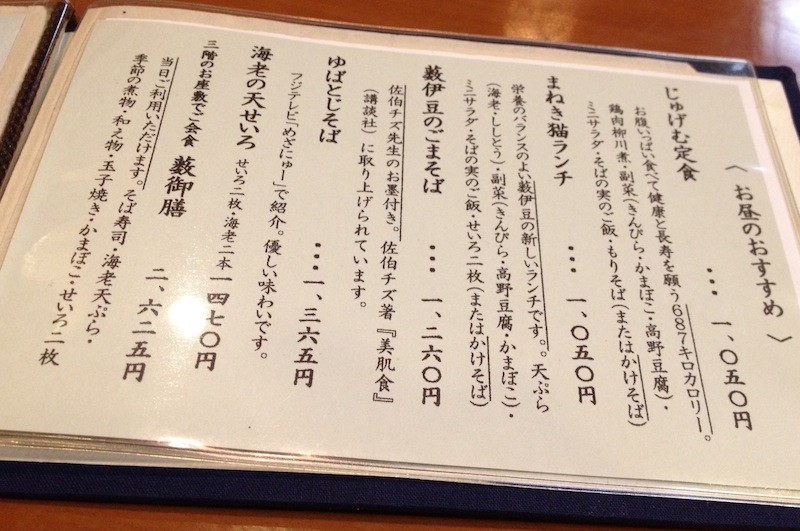 〈 お昼のおすすめ 〉
じゅげむ定食 … 一、〇五〇円
お腹いっぱい食べて健康と長寿を願う687キロカロリー。
鶏肉柳川煮・副菜(きんぴら・かまぼこ・高野豆腐)・
ミニサラダ・そばの実のご飯・もりそば(またはかけそば)
まねき猫ランチ … 一、〇五〇円
栄養のバランスのよい藪伊豆の新しいランチです。。天ぷら
(海老・ししとう)・副菜(きんぴら・高野豆腐・かまぼこ)・
ミニサラダ・そばの実のご飯・せいろ二枚(またはかけそば)
藪伊豆のごまそば … 一、二六〇円
佐伯チズ先生のお墨付き。佐伯チズ著『美肌食』
(講談社)に取り上げられています。
ゆばとじそば … 一、三六五円
フジテレビ「めざにゅー」で紹介。優しい味わいです。
海老の天せいろ せいろ二枚・海老二本 一四七〇円
三階のお座敷でご会食 藪御膳 二、六二五円
当日ご利用いただけます。そば寿司・海老天ぷら・
季節の煮物・和え物・玉子焼き・かまぼこ・せいろ二枚